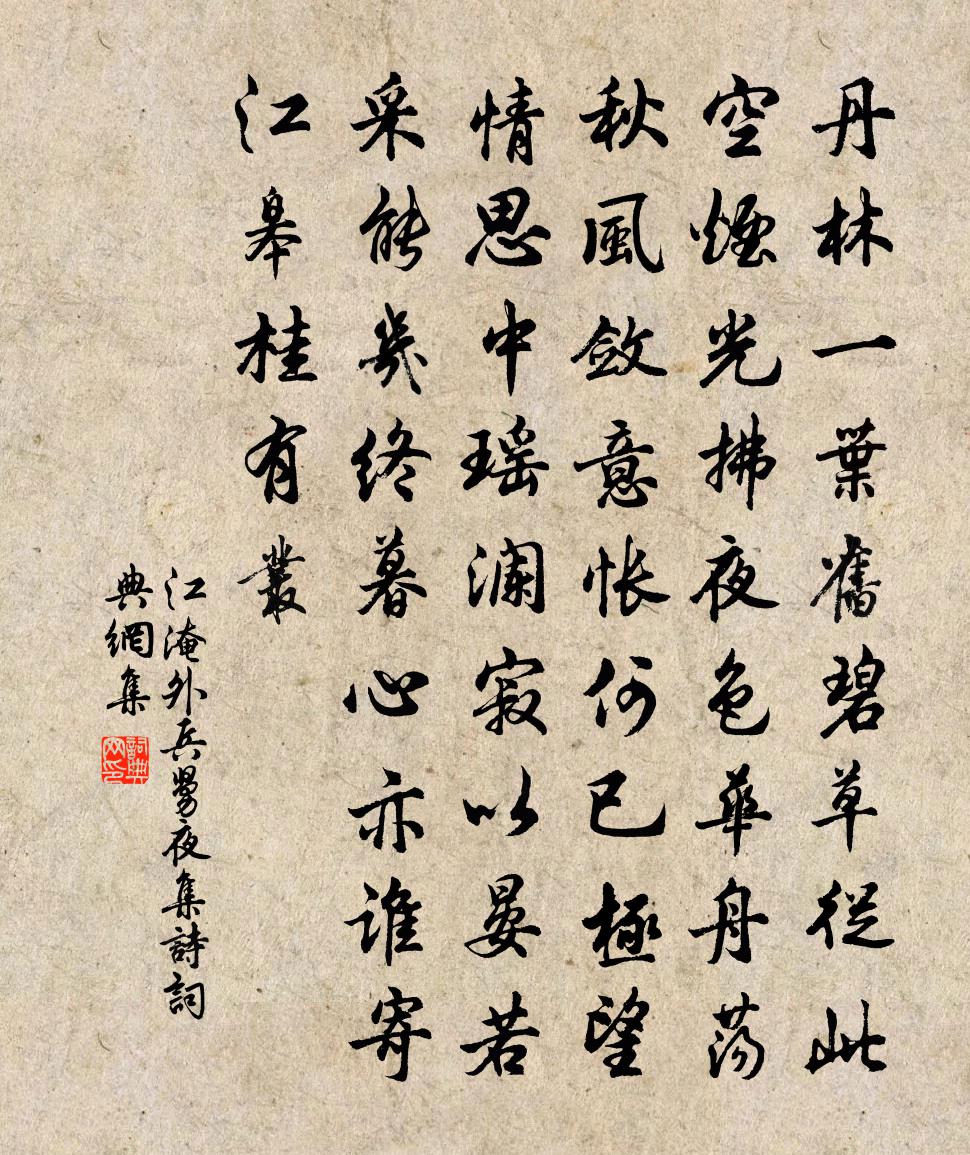 丹林一葉舊碧草從此
空煙光拂夜色華舟蕩
秋風斂意悵何已極望
情思中瑶瀾寂以晏若
采能幾終暮心亦誰寄
江皋桂有叢
江淹外兵舅夜集詩詞
典網集
詞典
网印